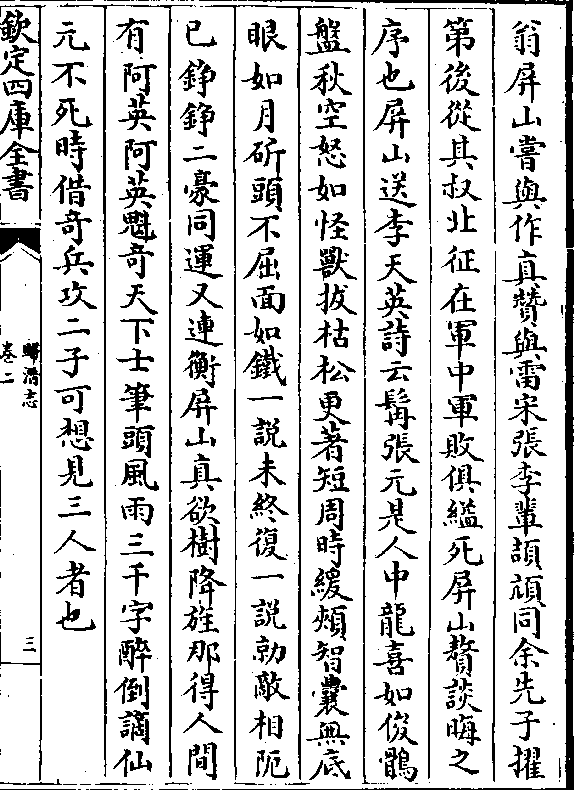 翁屏山嘗與作真贊與雷宋張李輩頡頏同余先子擢
第後從其叔北征在軍中軍敗俱縊死屏山贅談晦之
序也屏山送李天英詩云髯張元是人中龍喜如俊鶻
盤秋空怒如怪獸拔枯松更著短周時緩頰智囊無底
眼如月斫頭不屈面如鐵一説未終復一説勍敵相阨
已錚錚二豪同運又連衡屏山真欲樹降旌那得人間
有阿英阿英魁奇天下士筆頭風雨三千字醉倒謫仙
元不死時借奇兵攻二子可想見三人者也
欽定四庫全書
歸潛志
卷二
三